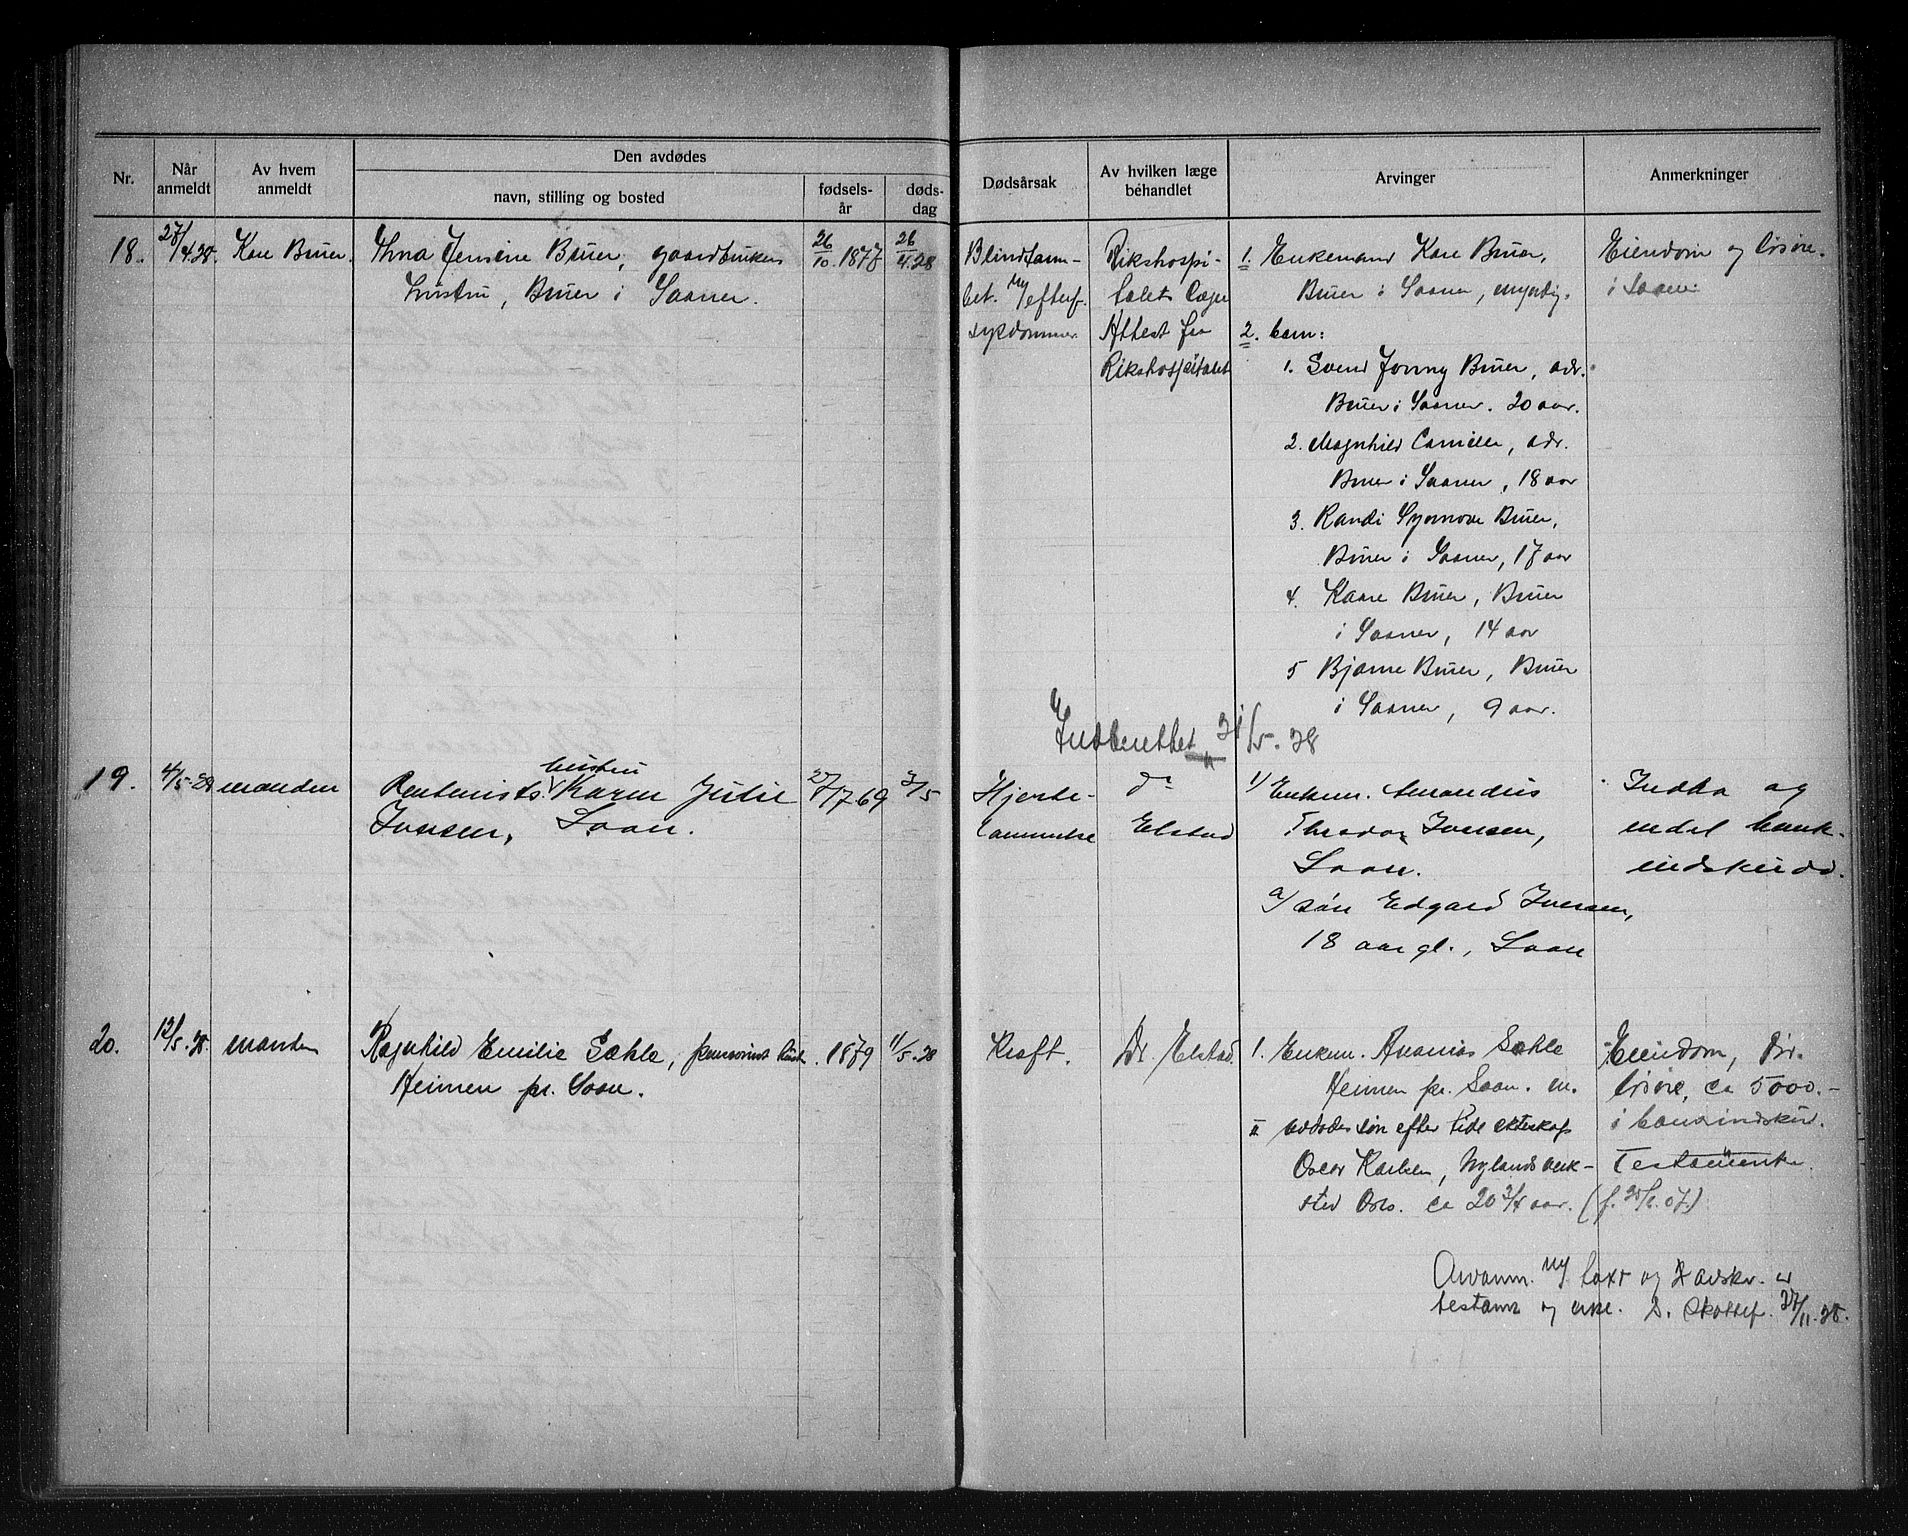 Nr.
Når anmeldt
Av hvem anmeldt
Den avdødes
navn, stilling og bosted
fødsels-år
døds-dag
Dødsårsak
Av hvilken læge behandlet
Arvinger
Anmerkninger
18.
27/4.28.
Kare Bruer.
Anna Jensine Bruer, gaardbrukers
hustru, Bruer i Saaner.
26/10.1877
26/4.28
Blindtarm-
bet. m/efterf.
sykdommer
Rikshospi-
talets Læger
Attest fra
Rikshospitalet
1. Enkemand Kare Bruer,
Bruer i Saaner, myndig.
2. barn:
1. Svend Jonny Bruer, adr.
Bruer i Saaner. 20 aar.
2. Magnhild Camilla, adr.
Bruer i Saaner, 18 aar
3. Randi Synnøve Bruer,
Bruer i Saaner, 17 aar
4. Kaare Bruer, Bruer
i Saaner, 14 aar
5 Bjarne Bruer, Bruer
i Saaner, 9 aar.
Eiendom og løsøre.
i Saaner
Indberettet 31/5.28
19.
4/5.28
manden
hustru
Rentenists Karen Julie
Iversen, Soon.
27/7 69
3/5
Hjerte-
lammelse
dr
Elstad
1/ Enkem. Amandus
Theodor Iversen,
Soon.
2/ søn Edgard Iversen,
18 aar gl., Soon
Indbo og
endel bank-
indskudd.
20.
12/5.28.
manden
Ragnhild Emilie Sæhle, pensionist hust.
Heimen pr. Soon.
1879
11/5.28
Kræft.
Dr. Elstad
1. Enkem. Ananias Sæhle
Heimen pr. Soon. m.
II avdødes søn efter tidl ekteskap
Oscar Karlsen, Nylands verk-
sted Oslo. ca 20 3/4 aar. (f.
07.)
Eiendom, div.
løsøre, ca 5000.-
i bankindskud.
Testamente.
Arvanm. m/ takst og 2 avskr. av
testam og erkl. s. Skattef. 27/11.28.